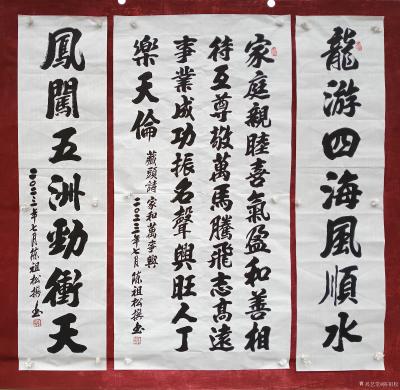 龍游四海風順水
家庭親睦喜氣盈和善相
待互尊敬萬馬騰飛志高遠
事業成功振名聲興旺人丁
樂天倫
藏頭詩 家和萬事興
二〇二三年七月陳祖松撰书
鳳闖五洲勁衝天
二〇二三年七月陳祖松撰书